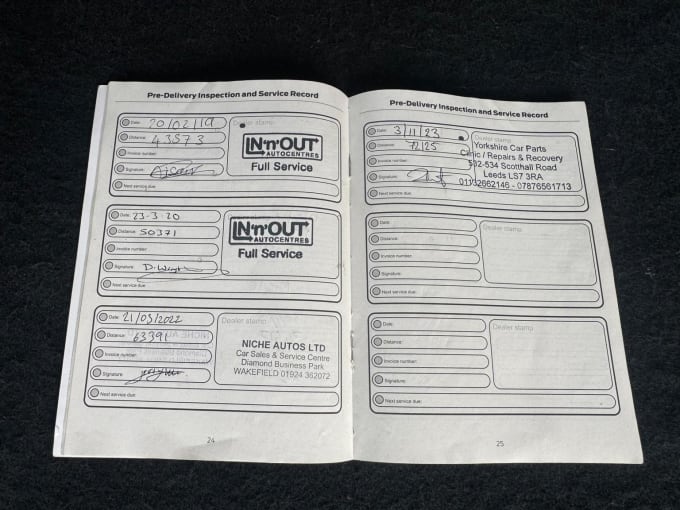 Pre-Delivery Inspection and Service Record
Date: 20/02/19
Distance: 43573
Invoice number:
Signature:
Next service due:
Dealer stamp
IN'n'OUT
AUTOCENTRES
Full Service
Date: 23-3-20
Distance: 50371
Invoice number:
Signature:
Next service due:
IN'n'OUT
AUTOCENTRES
Full Service
Date: 21/03/2022
Distance: 63391
Invoice number:
Signature:
Next service due:
Dealer stamp
NICHE AUTOS LTD
Car Sales & Service Centre
Diamond Business Park
WAKEFIELD 01924 362072
24
Pre-Delivery Inspection and Service Record
Date: 3/11/23
Distance: 72125
Invoice number:
Signature:
Next service due:
Dealer stamp
Yorkshire Car Parts
Clinic / Repairs & Recovery
532-534 Scotthall Road
Leeds LS7 3RA
01132662146 - 07876561713
Date:
Distance:
Invoice number:
Signature:
Next service due:
Dealer stamp
Date:
Distance:
Invoice number:
Signature:
Next service due:
Dealer stamp
25